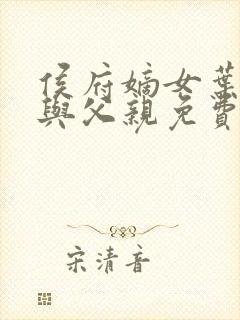 侯府嫡女葉
與父親免費
宋清音